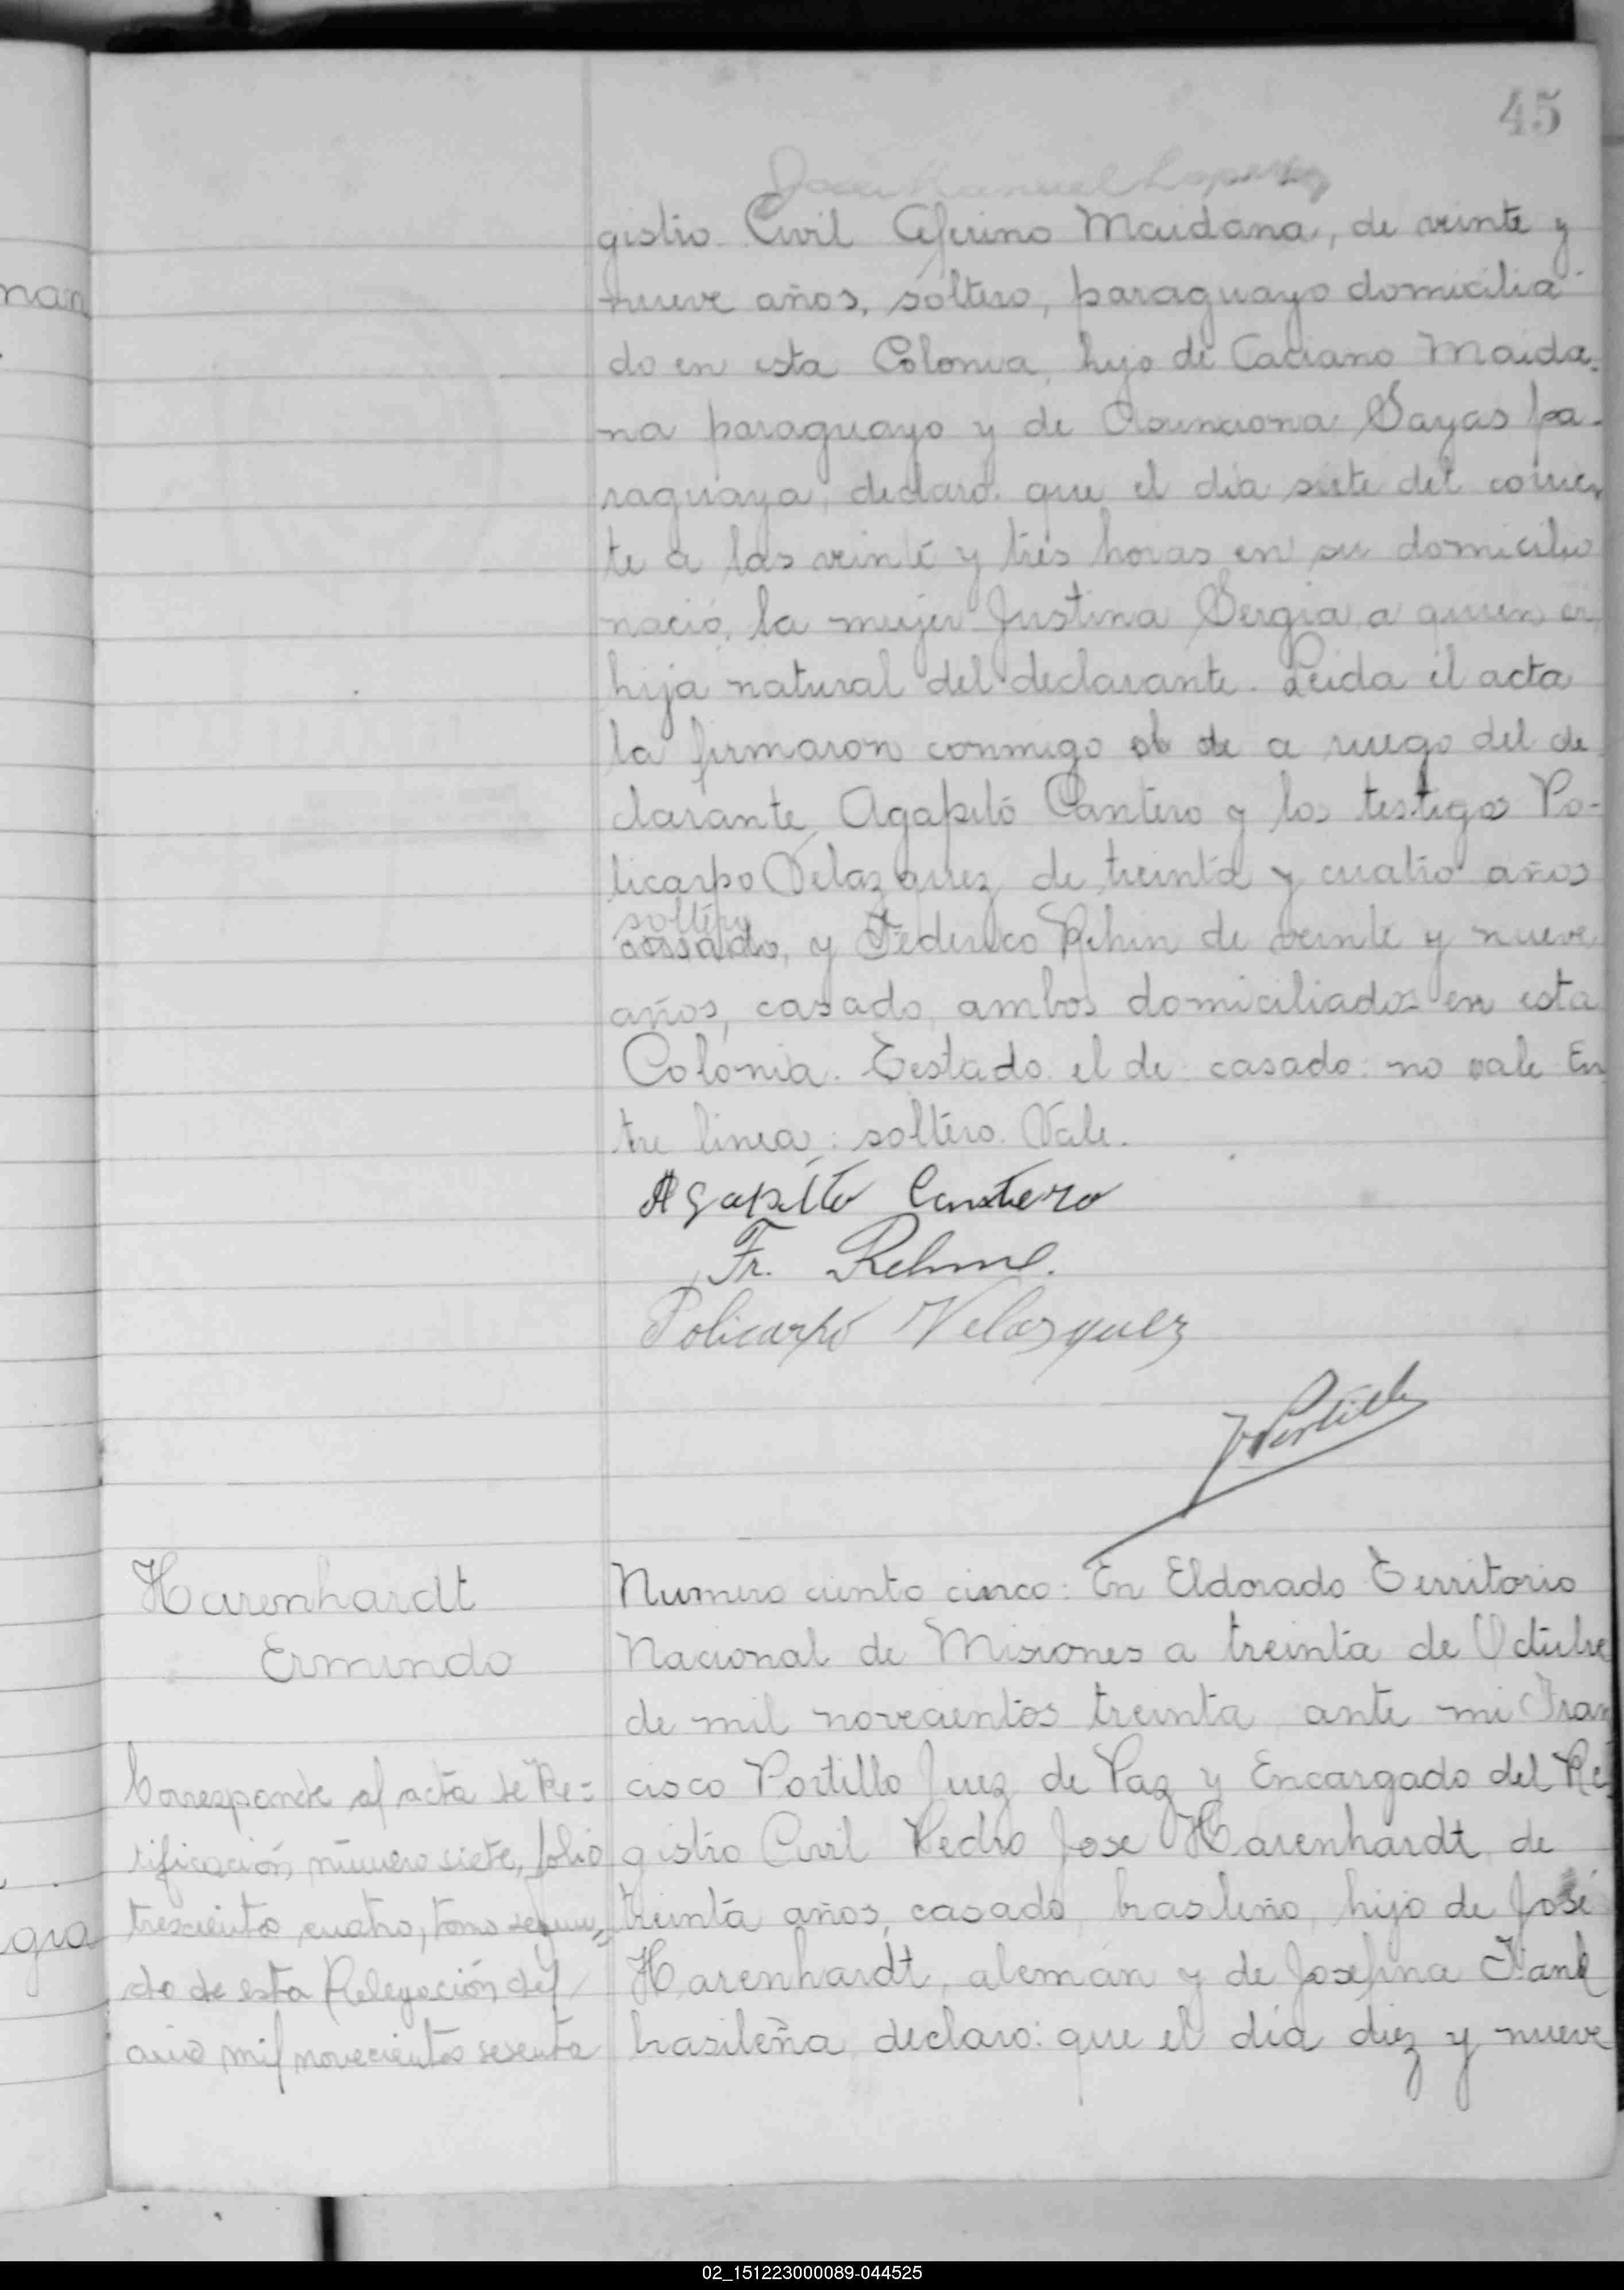 45
Juan Manuel Lopez
gistro Civil Ceferino Maidana, de veinte y
nueve años, soltero, paraguayo domicilia
do en esta Colonia, hijo de Caciano Maida-
na paraguayo y de Asunciona Sayas pa-
raguaya, declaro: que el dia siete del corrien
te a las veinte y tres horas en su domicilio
nació, la mujer Justina Sergia, a quien es
hija natural del declarante. Leida el acta
la firmaron conmigo de a ruego del de
clarante, Agapito Cantero y los testigos Po-
licarpo Velazquez de treinta y cuatro años
soltero
cassado, y Federico Rehm de veinte y nueve
años, casado, ambos domiciliados en esta
Colonia. Testado el de: casado: no vale En
tre linea: soltero. Vale.
Agapito Cantero
Fr. Rehme.
Policarpo Velazquez
Portillo
Harenhardt
Ermindo
Numero ciento cinco: En Eldorado Territorio
Nacional de Misiones a treinta de Octubre
de mil novecientos treinta, ante mi Fran
cisco Portillo Juez de Paz y Encargado del Re
gistro Civil Pedro Jose Harenhardt, de
treinta años, casado, brasileño, hijo de José
Harenhardt, alemán y de Josefina Frank
brasileña, declaro: que el dia diez y nueve
Corresponde al acta de Re=
tificación, número siete, folio
trescientos cuatro, tomo segun=
do de esta Delegación del
año mil novecientos sesenta
man
gia
02_151223000089-044525